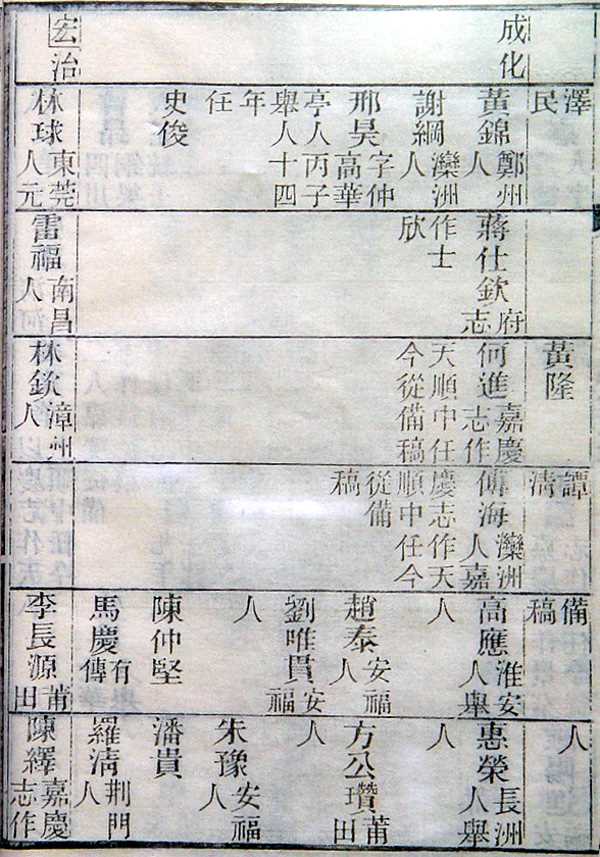 成化
宏治
澤
民
黃錦鄭州人
謝綱灤洲人
邢昊字仲高華
亭人丙子
舉人十四
年
任
史俊
林球東莞人元
蔣仕欽府志
作士
欣
雷福南昌人
黃隆
何進嘉慶志作
天順中任
今從備稿
林欽漳州人
譚
清
傅海灤洲人嘉
慶志作天
順中任今
從備
稿
備
稿
高應淮安人舉
人
趙泰安福人
劉唯貫安福
人
陳仲堅
馬慶有傳
李長源莆田
人
惠榮長洲人舉
人
方公瓚莆田
人
朱豫安福人
潘貴
羅清荆門人
陳繹嘉慶志作